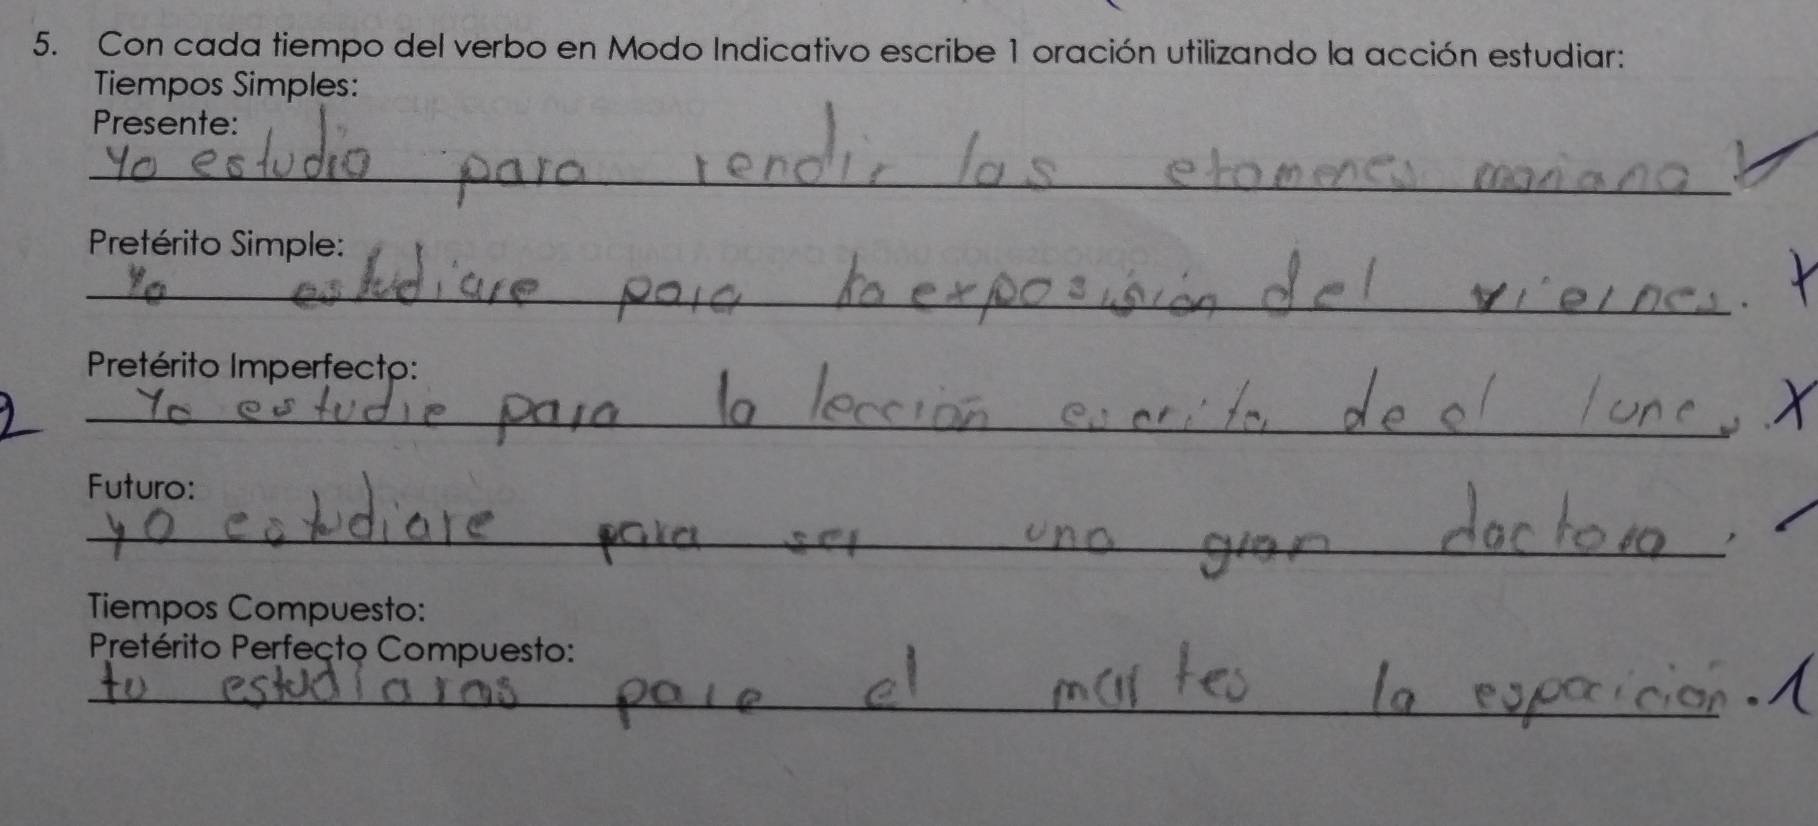 5. Con cada tiempo del verbo en Modo Indicativo escribe 1 oración utilizando la acción estudiar:
Tiempos Simples:
Presente:
yo estudio para rendir las examenes mañana
Pretérito Simple:
Yo estudiare para la exposición del viernes.
Pretérito Imperfecto:
Yo estudie para la lección escrita de el lunes.
2
Futuro:
yo estudiare para ser una gran doctora.
Tiempos Compuesto:
Pretérito Perfecto Compuesto:
tu estudiaras para el martes la esposición.